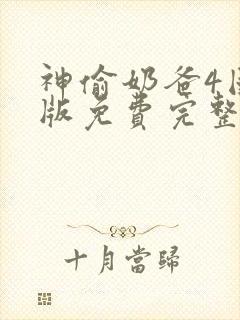 神偷奶爸4
版免费完整
十月當歸